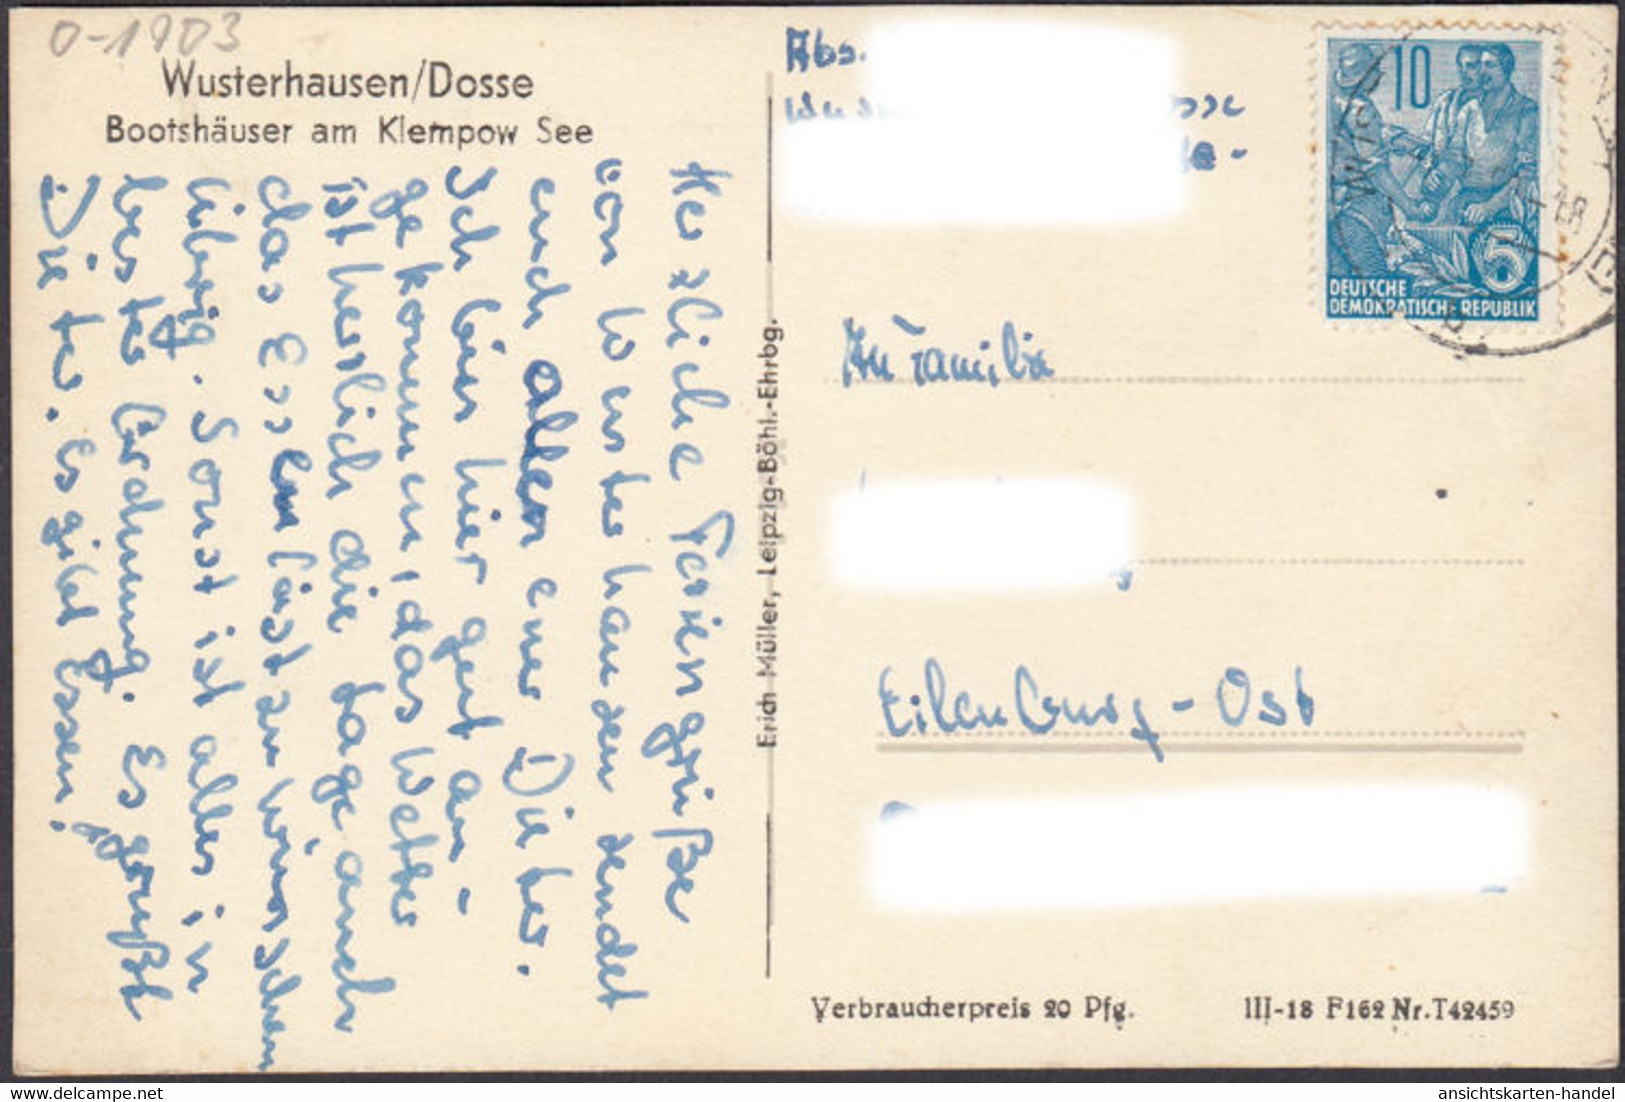 0-1903
Wusterhausen/Dosse
Bootshäuser am Klempow See
Herzliche Feriengrüße
von Wusterhausen sendet
euch allen euer Dieter.
Ich bin hier gut an-
gekommen, das Wetter
ist herrlich die tage auch
das Essen läst zu wünschen
übrig. Sonst ist alles in
bester Ordnung. Es grüßt
Dieter. Es gibt Essen!
Erich Müller, Leipzig-Böhl.-Ehrbg.
Abs.
10
5
DEUTSCHE
DEMOKRATISCHE REPUBLIK
An Familie
Eilenburg-Ost
Verbraucherpreis 20 Pfg.
III-18 F162 Nr. T42459
ansichtskarten-handel